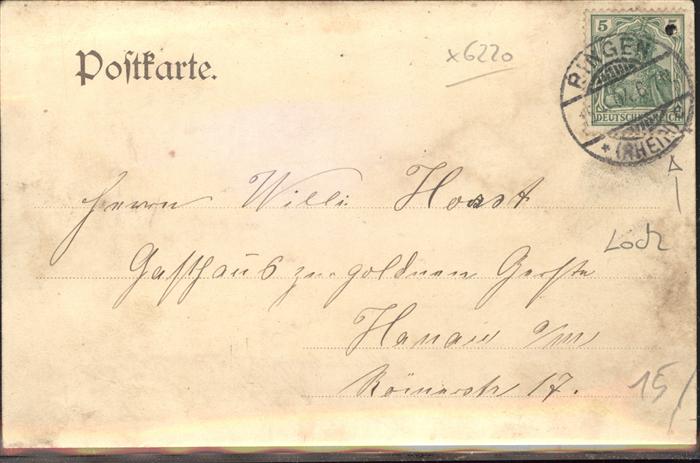 Postkarte.
x6220
5 5
DEUTSCHES REICH
BINGEN
* (RHEIN) *
Herrn Willi Horst
Gasthaus zur goldnen Gerste
Lock
Hanau a/M
Römerstr 17.
15/